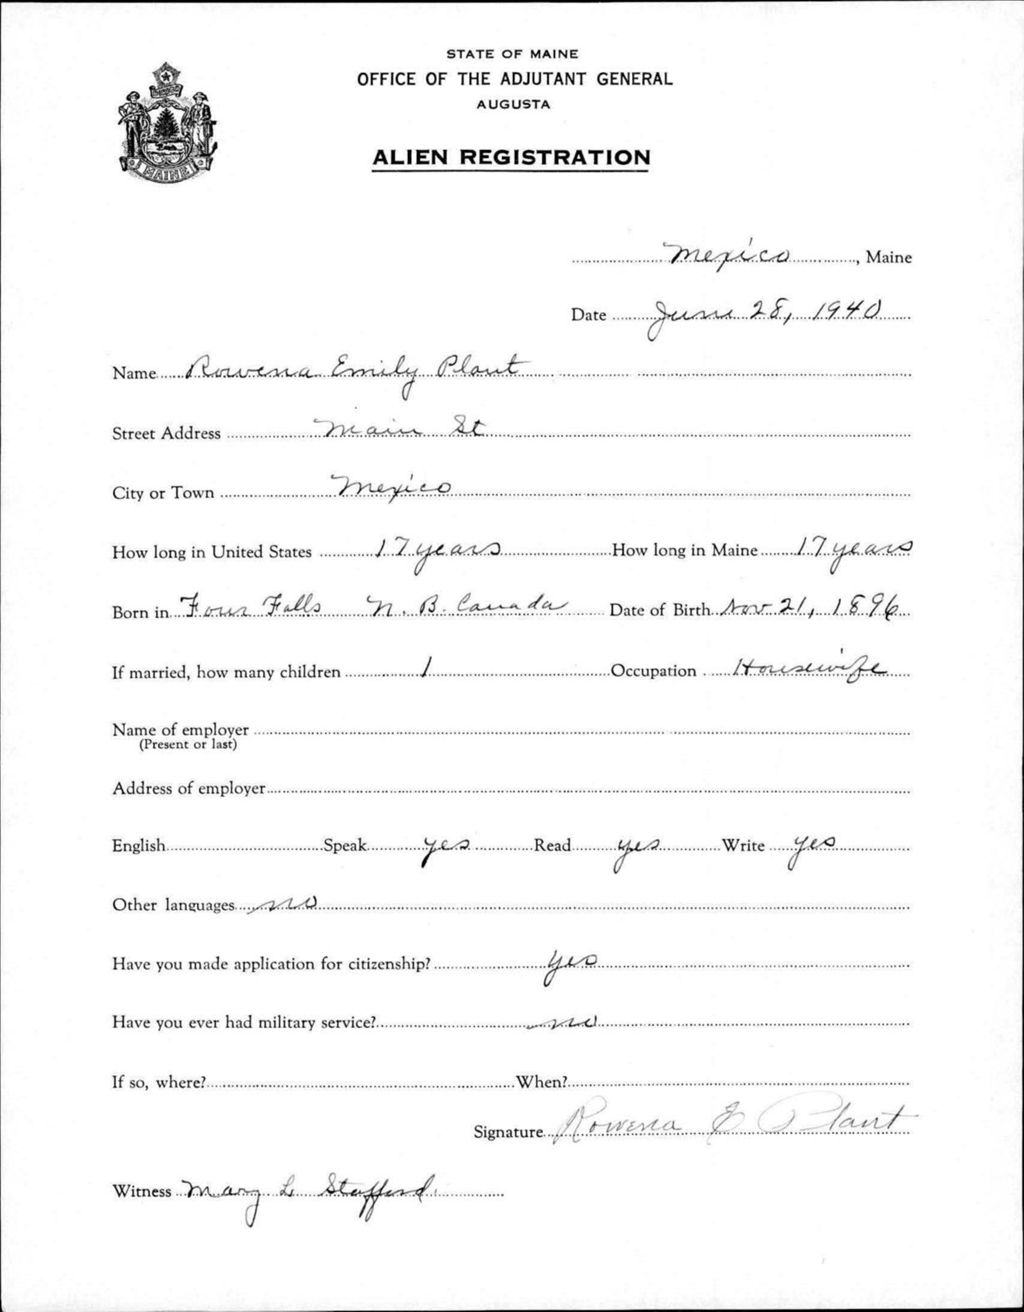 STATE OF MAINE
OFFICE OF THE ADJUTANT GENERAL
AUGUSTA
ALIEN REGISTRATION
MAINE
Mexico, Maine
Date June 28, 1940
Name Rowena Emily Plant
Street Address Main St
City or Town Mexico
How long in United States 17 years How long in Maine 17 years
Born in Four Falls N. B. Canada Date of Birth Nov 21, 1896
If married, how many children 1 Occupation Housewife
Name of employer
(Present or last)
Address of employer
English Speak yes Read yes Write yes
Other languages no
Have you made application for citizenship? Yes
Have you ever had military service? no
If so, where? When?
Signature Rowena E Plant
Witness Mary L Stafford